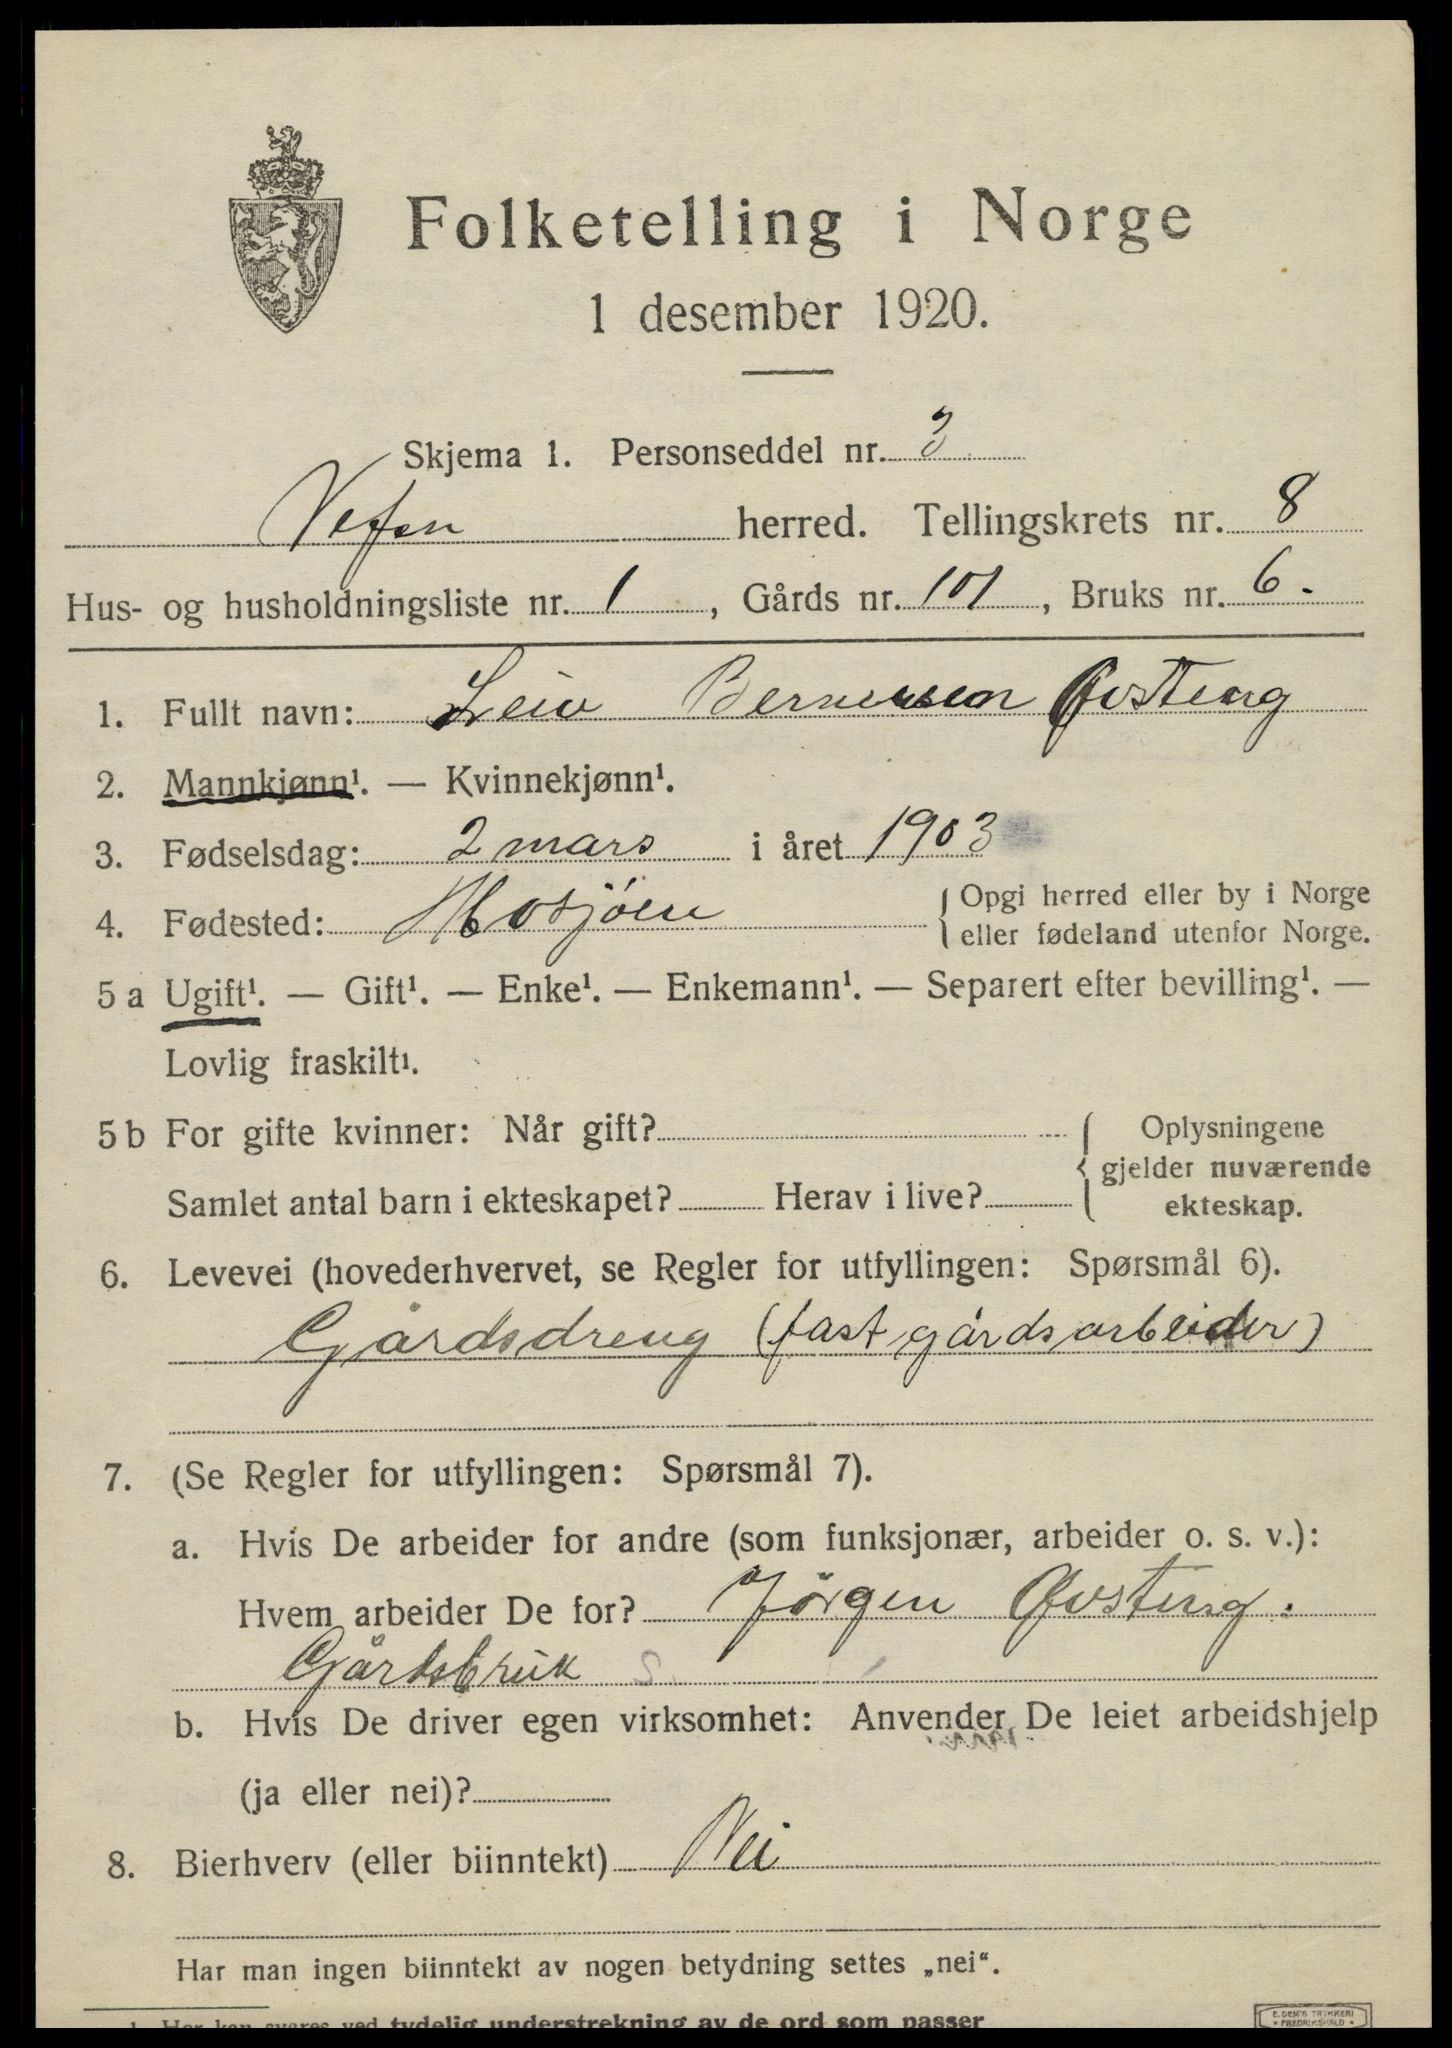 Folketelling i Norge
1 desember 1920.
Skjema 1. Personseddel nr. 3
Vefsn herred. Tellingskrets nr. 8
Hus- og husholdningsliste nr. 1, Gårds nr. 101, Bruks nr. 6.
1. Fullt navn: Leiv Bernersen Øvsteng
2. Mannkjønn¹. — Kvinnekjønn¹.
3. Fødselsdag: 2 mars i året 1903
4. Fødested: Mosjöen { Opgi herred eller by i Norge
eller fødeland utenfor Norge.
5 a Ugift¹. — Gift¹. — Enke¹. — Enkemann¹. — Separert efter bevilling¹. —
Lovlig fraskilt¹.
5 b For gifte kvinner: Når gift? { Oplysningene
gjelder nuværende
Samlet antal barn i ekteskapet? Herav i live? ekteskap.
6. Levevei (hovederhvervet, se Regler for utfyllingen: Spørsmål 6).
Gårdsdreng (fast gårdsarbeider)
7. (Se Regler for utfyllingen: Spørsmål 7).
a. Hvis De arbeider for andre (som funksjonær, arbeider o. s. v.):
Hvem arbeider De for? Jörgen Øvsteng.
Gårdsbruk S.
b. Hvis De driver egen virksomhet: Anvender De leiet arbeidshjelp
(ja eller nei)?
8. Bierhverv (eller biinntekt) Nei
Har man ingen biinntekt av nogen betydning settes „nei“.
1 Her kan svares ved tydelig understrekning av de ord som passer
E. SEM'S TRYKKERI
• FREDRIKSHALD •